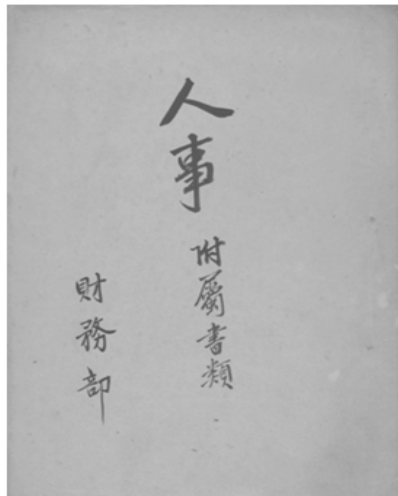 人事
附属書類
財務部